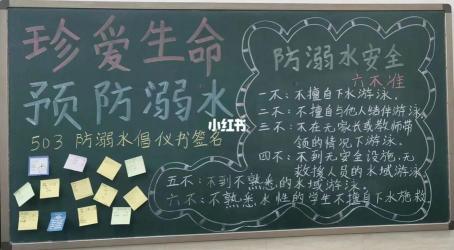 珍爱生命
预防溺水
503 防溺水倡仪书签名
小红书
防溺水安全
六不准
一不：不擅自下水游泳。
二不：不擅自与他人结伴游泳。
三不：不在无家长或教师带
领的情况下游泳。
四不：不到无安全设施、无
救援人员的水域游泳
五不：不到不熟悉的水域游泳。
六不：不熟悉水性的学生不擅自下水施救